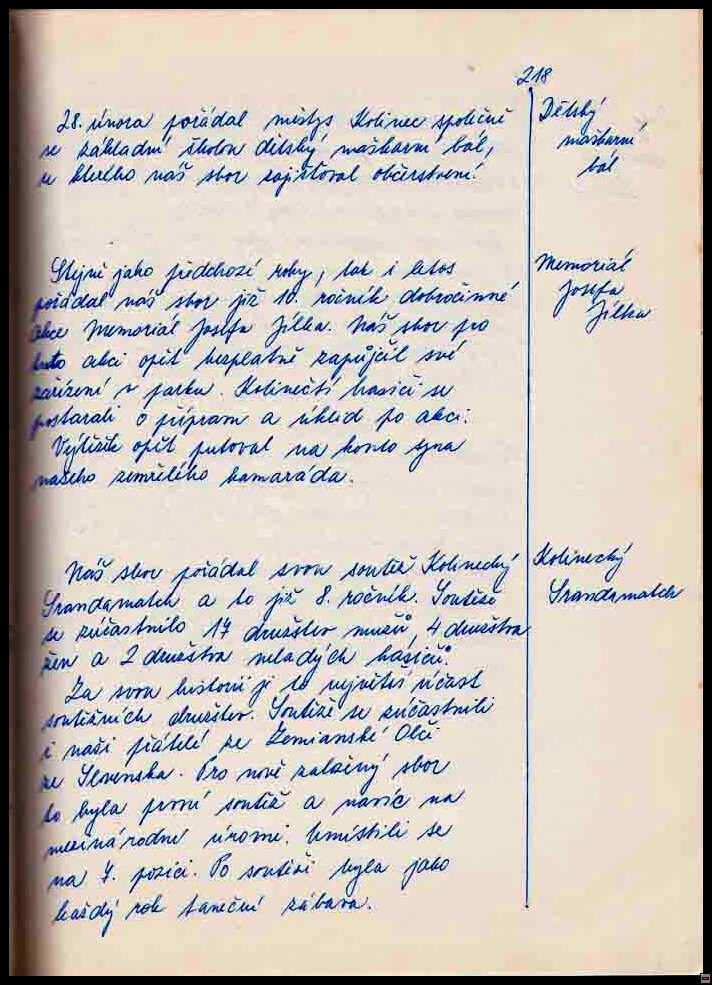 218
28. února pořádal městys Kolinec společně
se základní školou dětský maškarní bál,
na kterého náš sbor zajišťoval občerstvení.
Dětský
maškarní
bál
Stejně jako předchozí roky, tak i letos
pořádal náš sbor již 10. ročník dobročinné
akce Memoriál Josefa Jílka. Náš sbor pro
tuto akci opět bezplatně zapůjčil své
zařízení v parku. Kolinečtí hasiči se
postarali o přípram a úklid po akci.
Výtěžek opět putoval na konto syna
našeho zemřelého kamaráda.
Memoriál
Josefa
Jílka
Náš sbor pořádal svou soutěž Kolinecký
Srandamatch a to již 8. ročník. Soutěže
se zúčastnilo 17 družstev mužů, 4 družstva
žen a 2 družstva mladých hasičů.
Za svou historii je to největší účast
soutěžních družstev. Soutěže se zúčastnili
i naši přátelé ze Zemianské Olči
ze Slovenska. Pro nově založený sbor
to byla první soutěž a navíc na
mezinárodní úrovni. Umístili se
na 7. pozici. Po soutěži byla jako
každý rok taneční zábava.
Kolinecký
Srandamatch